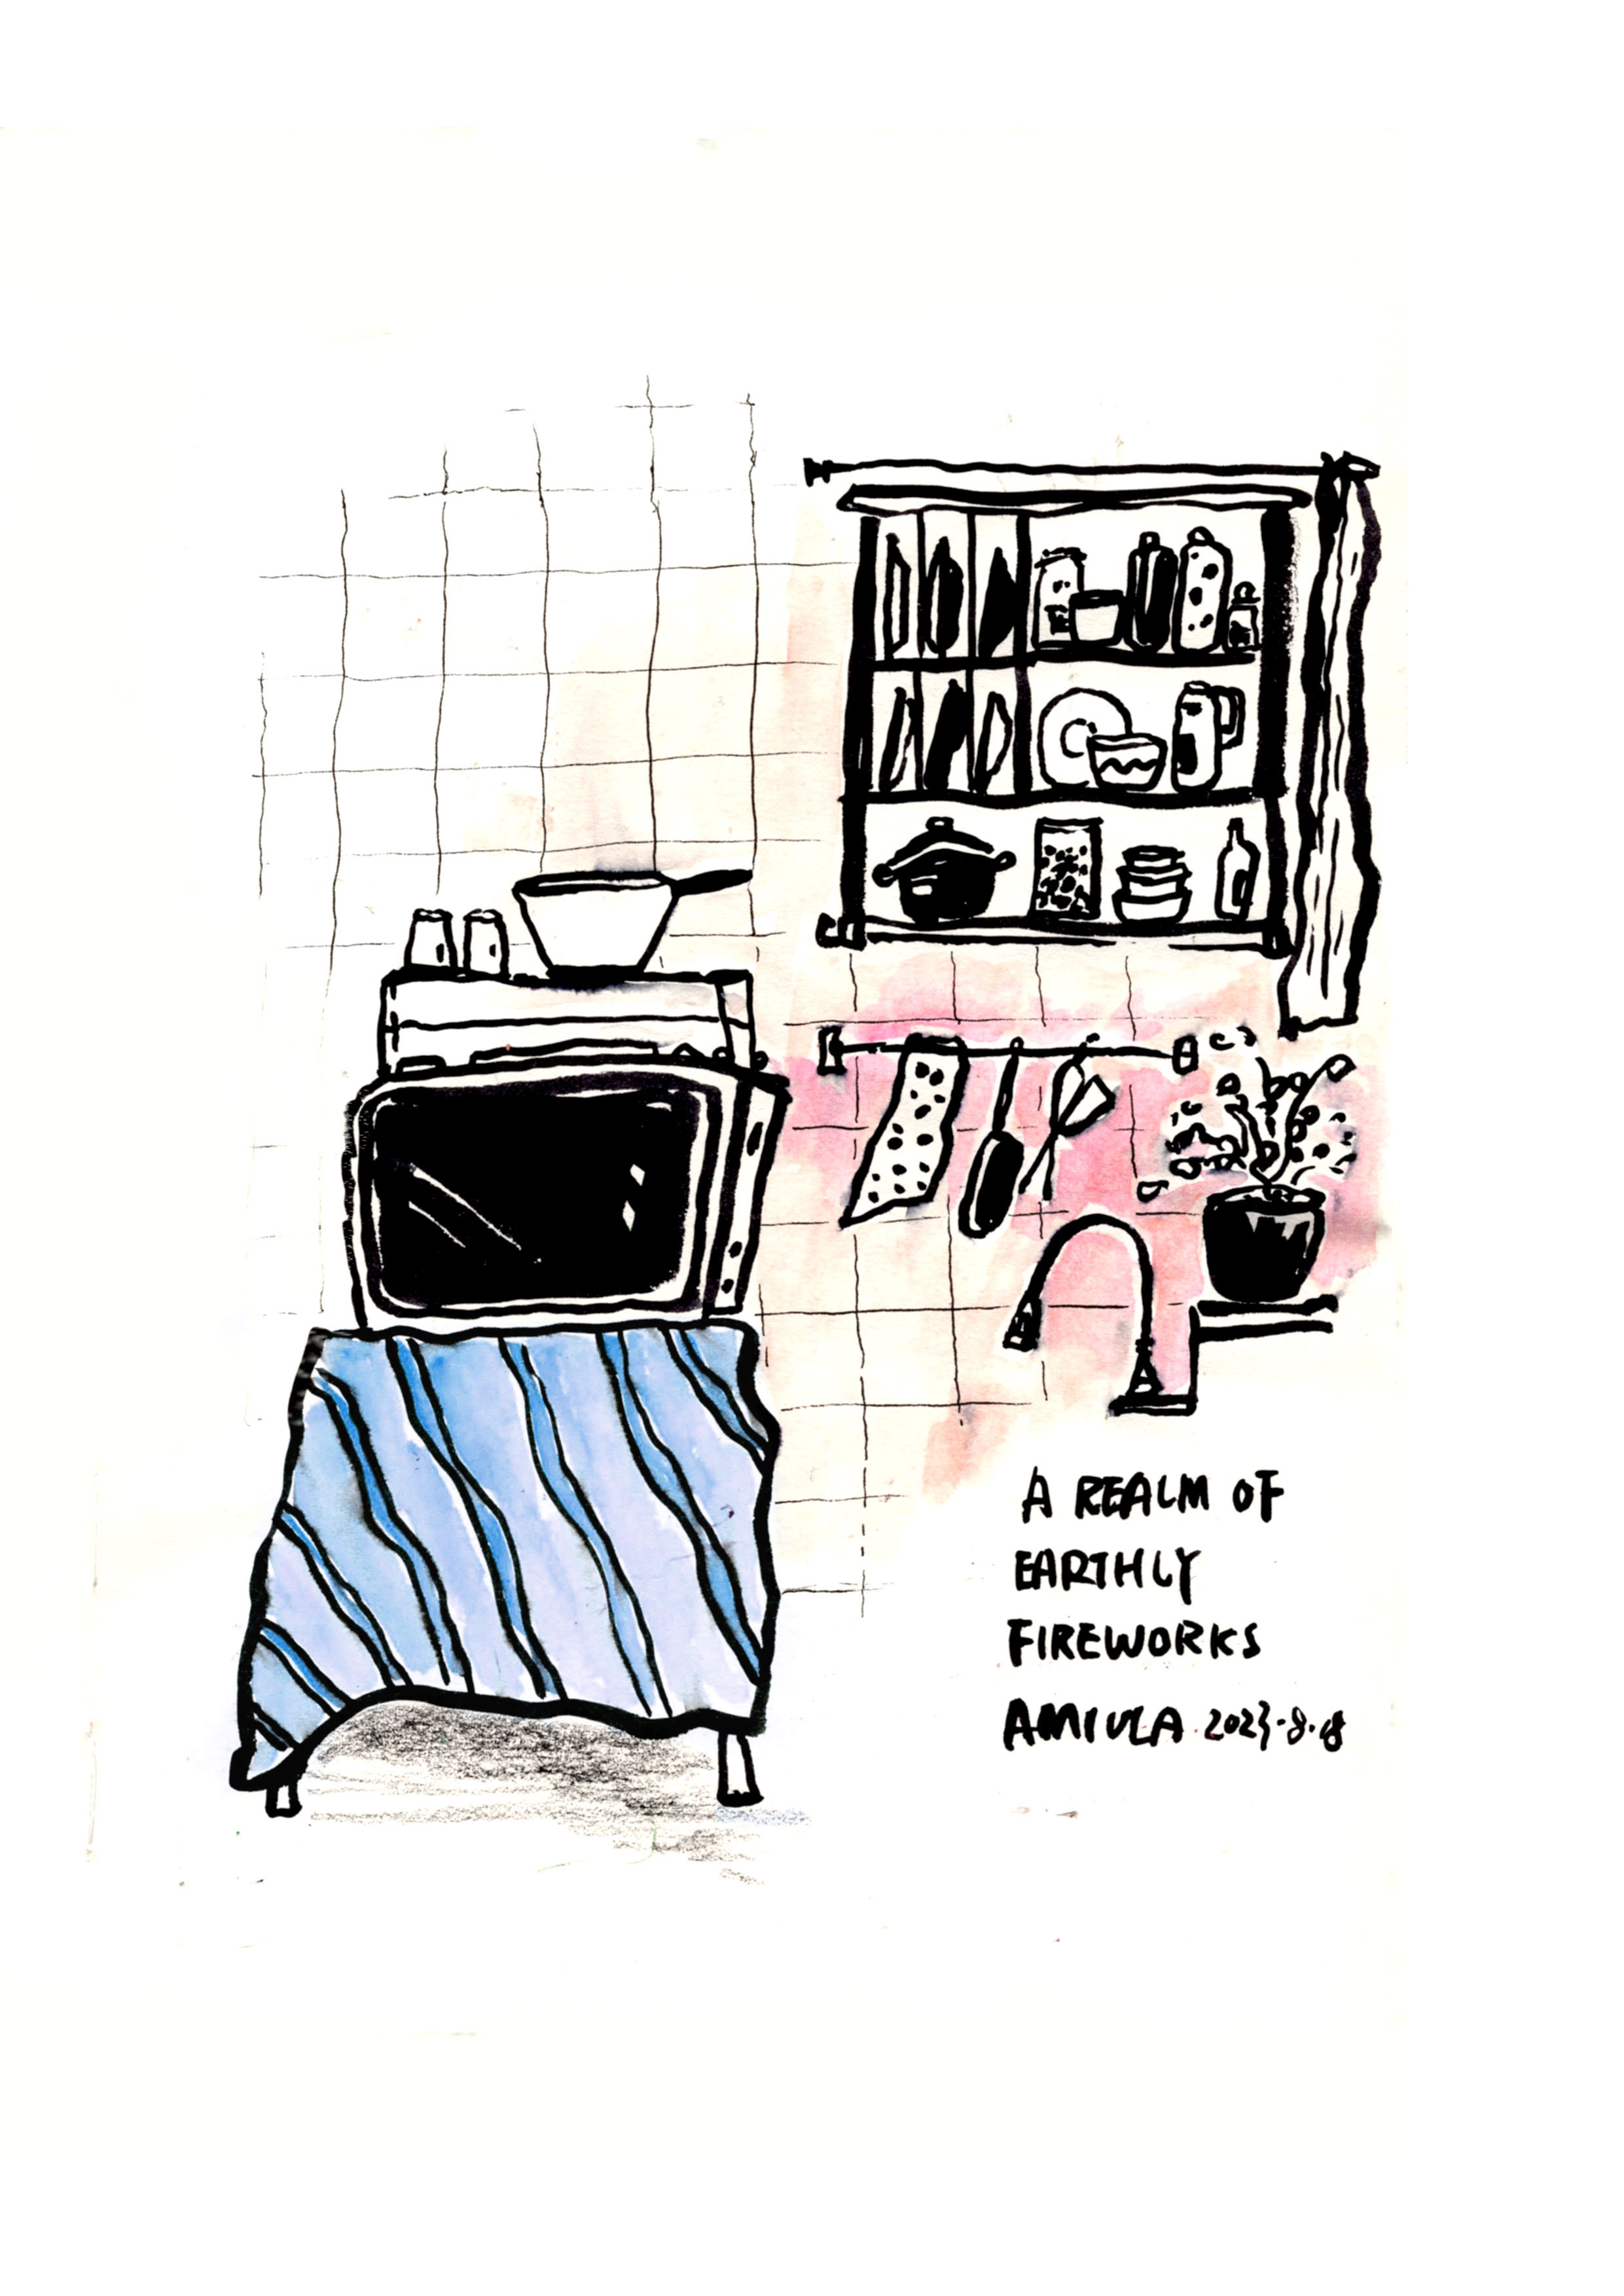 A REALM OF
EARTHLY
FIREWORKS
AMIULA 2023.8.18